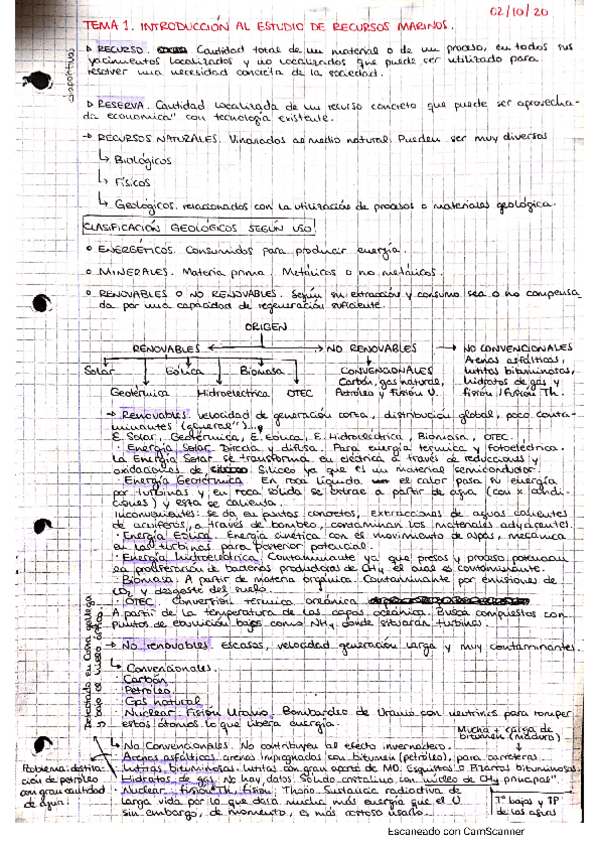 02/10/20
TEMA 1. INTRODUCCIÓN AL ESTUDIO DE RECURSOS MARINOS.
▷ RECURSO. Cantidad total de un material o de un proceso, en todos sus
yacimientos localizados y no localizados que puede ser utilizado para
resolver una necesidad concreta de la sociedad.
diapositivas
▷ RESERVA. Cantidad localizada de un recurso concreto que puede ser aprovecha-
da económica" con tecnología existente.
→ RECURSOS NATURALES. Vinculados al medio natural. Pueden ser muy diversos
↳ Biológicos
↳ Físicos
↳ Geológicos. relacionados con la utilización de procesos o materiales geológica.
CLASIFICACIÓN GEOLÓGICOS SEGÚN USO
• ENERGÉTICOS. Consumidos para producir energía.
• MINERALES. Materia prima. Metálicos o no metálicos.
• RENOVABLES O NO RENOVABLES. Según su extracción y consumo sea o no compensa-
da por una capacidad de regeneración suficiente.
ORIGEN
RENOVABLES ← → NO RENOVABLES → NO CONVENCIONALES
Solar Eólica Biomasa
Geotérmica Hidroelectrica OTEC
CONVENCIONALES
Carbón, gas natural,
Petróleo y fisión U.
Arenas asfálticas,
lutitas bituminosas,
hidratos de gas y
fisión/fusión Th.
→ Renovables. velocidad de generación corta, distribución global, poco conta-
minantes (general")
E. Solar, Geotérmica, E. Eólica, E. Hidroeléctrica, Biomasa, OTEC.
· Energía Solar. Directa y difusa. Para energía térmica y fotoeléctrica.
La Energía Solar se transforma en eléctrica a través de reducciones y
oxidaciones de Siliceo ya que es un material semiconductor.
· Energía Geotérmica En roca líquida el calor pasa su energía
por turbinas y en roca sólida se extrae a partir de agua (con x condi-
ciones) y esta se calienta.
Inconvenientes: se da en puntos concretos, extracciones de aguas calientes
de acuíferos, a través de bombeo, contaminan los materiales adyacentes.
· Energía Eólica. Energía cinética con el movimiento de aspas, mecánica
en las turbinas para posterior potencial.
· Energía hidroeléctrica: Contaminante ya que presas y proceso potencian
la proliferación de bacterias productoras de CH4 el cual es contaminante.
· Biomasa: A partir de materia orgánica. Contaminante por emisiones de
CO2 y desgaste del suelo.
· OTEC. Conversión térmica oceánica
A partir de la temperatura de las capas oceánica. Busca compuestos con
puntos de ebullición bajos como NH4 donde situarán turbinas.
→ No renovables. Escasos, velocidad generación larga y muy contaminantes.
↳ Convencionales.
· Carbón
· Petróleo
· Gas natural
· Nuclear: Fisión Uranio. Bombardeo de Uranio con neutrines para romper
estos átomos lo que libera energía.
Mucha + carga de
bitumen (madura)
↳ No Convencionales. No contribuyen al efecto invernadero.
· Arenas asfálticas arenas impregnadas con bitumen (petróleo), para carreteras
· Lutitas bituminosas. Lutitas con gran aporte de MO. Esquistos o Pizarras bituminosas.
· Hidratos de gas. No hay datos. Sólido cristalino con núcleo de CH4 principal".
· Nuclear: fusión Th, fisión: Thorio. Sustancia radiactiva de
larga vida por lo que dará mucha más energía que el U.
sin embargo, de momento, es más costoso usarlo.
Tª bajas y ↑P
de las aguas
Problema: destila-
ción de petróleo
con gran cantidad
de agua!
Escaneado con CamScanner